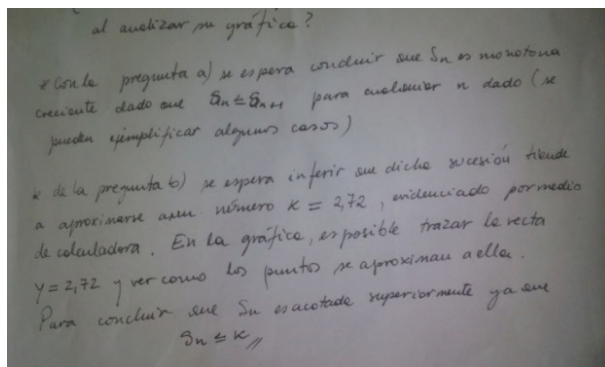 al analizar su gráfica?
* Con la pregunta a) se espera concluir que Sn es monotona
creciente dado que Sn ≤ Sn+1 para cualquier n dado (se
pueden ejemplificar algunos casos)
* de la pregunta b) se espera inferir que dicha sucesión tiende
a aproximarse a un número K = 2,72, evidenciado por medio
de calculadora. En la gráfica, es posible trazar la recta
y = 2,72 y ver como los puntos se aproximan a ella.
Para concluir que Sn es acotada superiormente ya que
Sn ≤ K //